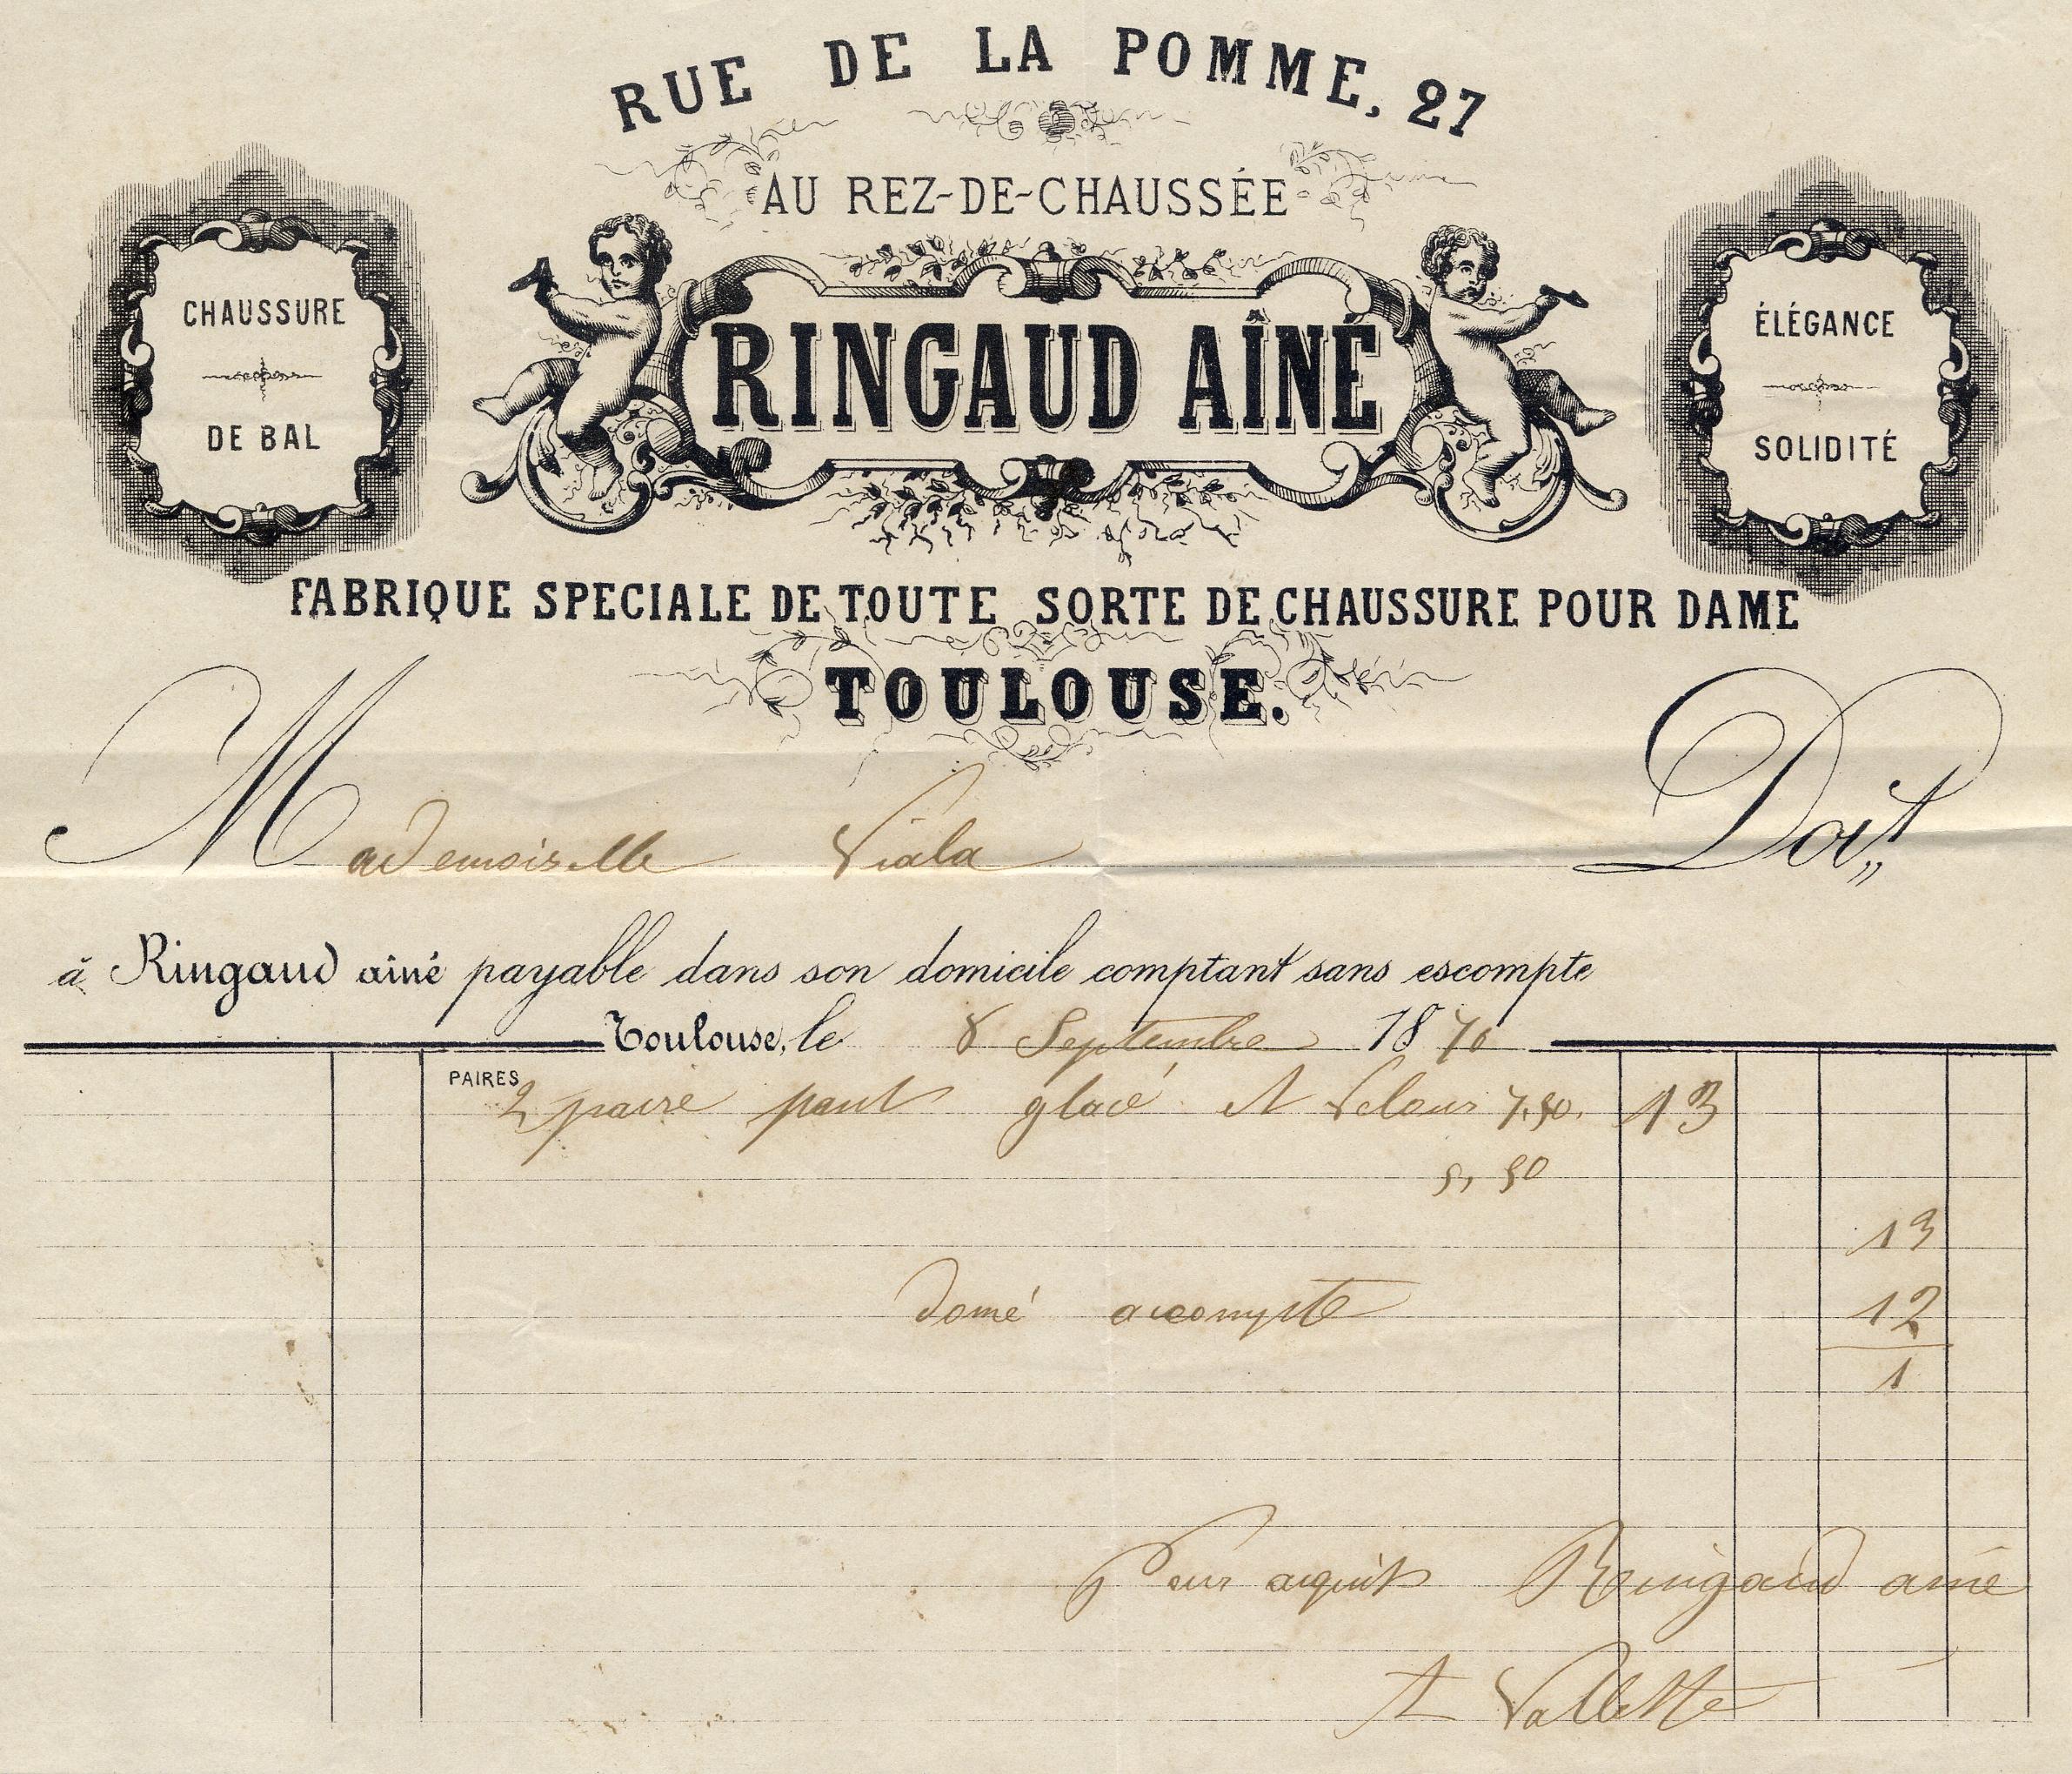 RUE DE LA POMME, 27
AU REZ-DE-CHAUSSÉE
CHAUSSURE
DE BAL
RINGAUD AÎNÉ
ÉLÉGANCE
SOLIDITÉ
FABRIQUE SPECIALE DE TOUTE SORTE DE CHAUSSURE POUR DAME
TOULOUSE.
Mademoiselle Viala Doit,,
à Ringaud ainé payable dans son domicile comptant sans escompte
Toulouse, le 8 Septembre 1870
PAIRES
2 paire glacé et Velour 7,50. 13
5,50
13
accompte 12
1
Pour acquit Ringaud ainé
Vallette